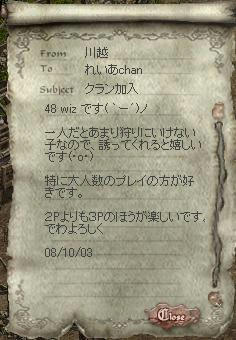 From 川越
To れいあchan
Subject クラン加入
48 wiz です(｀ー´)ノ
一人だとあまり狩りにいけない
子なので、誘ってくれると嬉しい
です(･o･)
特に大人数のプレイの方が好
きです。
２Pよりも３Pのほうが楽しいです。
でわよろしく
08/10/03
Close